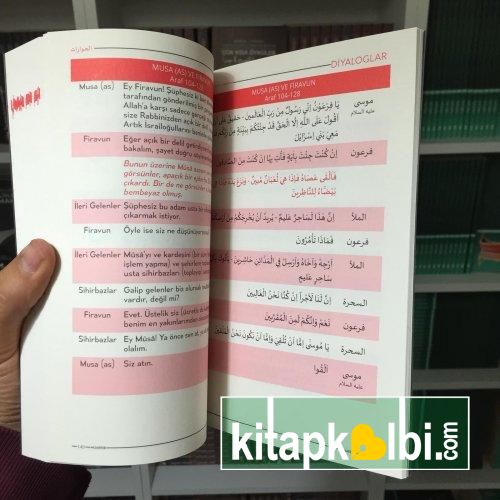 الحوارات
MUSA (AS) VE FİRAVUN
Araf 104-128
Musa (as) Ey Firavun! Şüphesiz ki ben
tarafından gönderilmiş bir
Allah'a karşı sadece gerçeği
size Rabbinizden açık bir del
Artık İsrailoğullarını benim
Firavun Eğer açık bir delil getirdiysen
bakalım, şayet doğru söyleyen
Bunun üzerine Mûsâ
görsünler, apaçık bir ejderha
çıkardı. Bir de ne görsünler
bembeyaz olmuş.
İleri Gelenler Şüphesiz bu adam usta bir
çıkarmak istiyor.
Firavun Öyle ise siz ne düşünüyorsunuz
İleri Gelenler Mûsâ'yı ve kardeşini (bir
işlem yapma) ve şehirlere
usta sihirbazları (toplayıp)
Sihirbazlar Galip gelenler biz olursak
vardır, değil mi?
Firavun Evet. Üstelik siz (ücretle
benim en yakınlarımdan
Sihirbazlar Ey Mûsâ! Ya önce sen at,
atalım.
Musa (as) Siz atın.
DİYALOGLAR
MUSA (AS) VE FİRAVUN
Araf 104-128
موسى
عليه السلام
يَا فِرْعَوْنُ إِنِّي رَسُولٌ مِن رَّبِّ الْعَالَمِينَ - حَقِيقٌ عَلَى
أَقُولَ عَلَى اللَّهِ إِلَّا الْحَقَّ قَدْ جِئْتُكُمْ بِبَيِّنَةٍ مِن رَبِّكُمْ
مَعِيَ بَنِي إِسْرَائِيلَ
فرعون إِنْ كُنْتَ جِئْتَ بِآيَةٍ فَأْتِ بِهَا إِنْ كُنْتَ مِنَ الصَّادِقِينَ
فَأَلْقَى عَصَاهُ فَإِذَا هِيَ ثُعْبَانٌ مُبِينٌ - وَنَزَعَ يَدَهُ فَإِذَا
بَيْضَاءُ لِلنَّاظِرِينَ
الملأ إِنَّ هَذَا لَسَاحِرٌ عَلِيمٌ - يُرِيدُ أَنْ يُخْرِجَكُمْ مِنْ أَرْضِكُمْ
فرعون فَمَاذَا تَأْمُرُونَ
الملأ أَرْجِهْ وَأَخَاهُ وَأَرْسِلْ فِي الْمَدَائِنِ حَاشِرِينَ - يَأْتُوكَ بِكُلِّ
سَاحِرٍ عَلِيمٍ
السحرة إِنَّ لَنَا لَأَجْرًا إِنْ كُنَّا نَحْنُ الْغَالِبِينَ
فرعون نَعَمْ وَإِنَّكُمْ لَمِنَ الْمُقَرَّبِينَ
السحرة يَا مُوسَى إِمَّا أَنْ تُلْقِيَ وَإِمَّا أَنْ نَكُونَ نَحْنُ الْمُلْقِينَ
موسى أَلْقُوا
عليه السلام
kitapkalbi.com